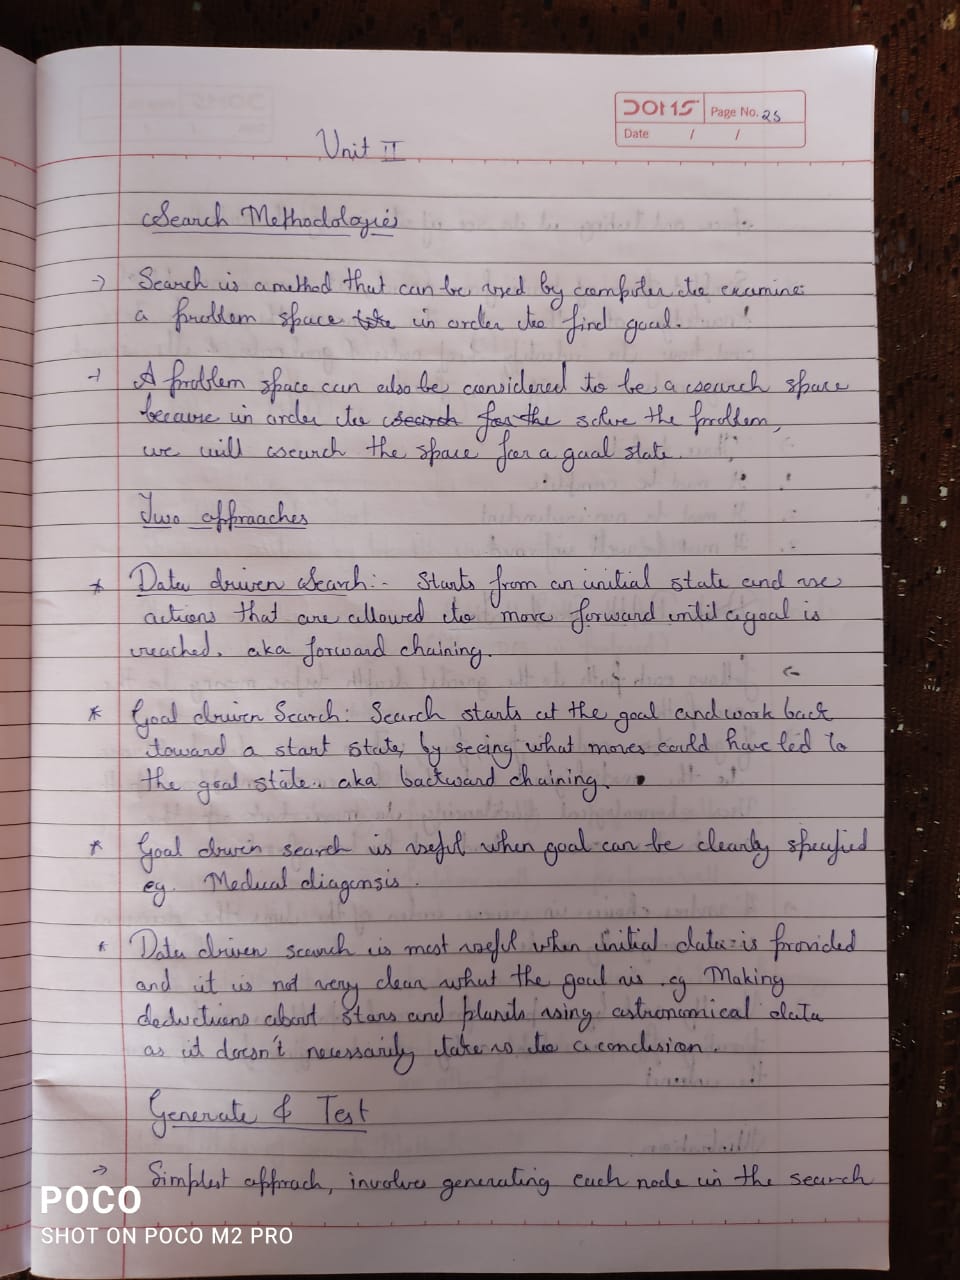 DOMS Page No. 25
Date / /
Unit II
Search Methodologies
→ Search is a method that can be used by computer to examine
a problem space take in order to find goal.
→ A problem space can also be considered to be a search space
because in order to search for the solve the problem,
we will search the space for a goal state.
Two approaches
* Data driven Search:- Starts from an initial state and use
actions that are allowed to move forward until a goal is
reached. aka forward chaining.
* Goal driven Search: Search starts at the goal and work back
toward a start state, by seeing what moves could have led to
the goal state. aka backward chaining.
* Goal driven search is useful when goal can be clearly specified
eg. Medical diagensis.
* Data driven search is most useful when initial data is provided
and it is not very clear what the goal is. eg Making
deductions about stars and planets using astronomical data
as it doesn't necessarily take us to a conclusion.
Generate & Test
→ Simplest approach, involves generating each node in the search
POCO
SHOT ON POCO M2 PRO